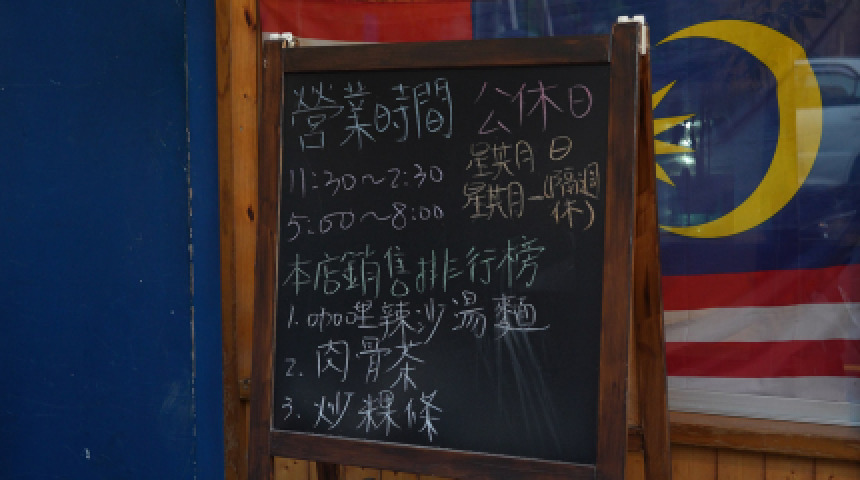 營業時間
11:30～2:30
5:00～8:00
公休日
星期日
星期一(隔週
休)
本店銷售排行榜
1. 咖哩辣沙湯麵
2. 肉骨茶
3. 炒粿條